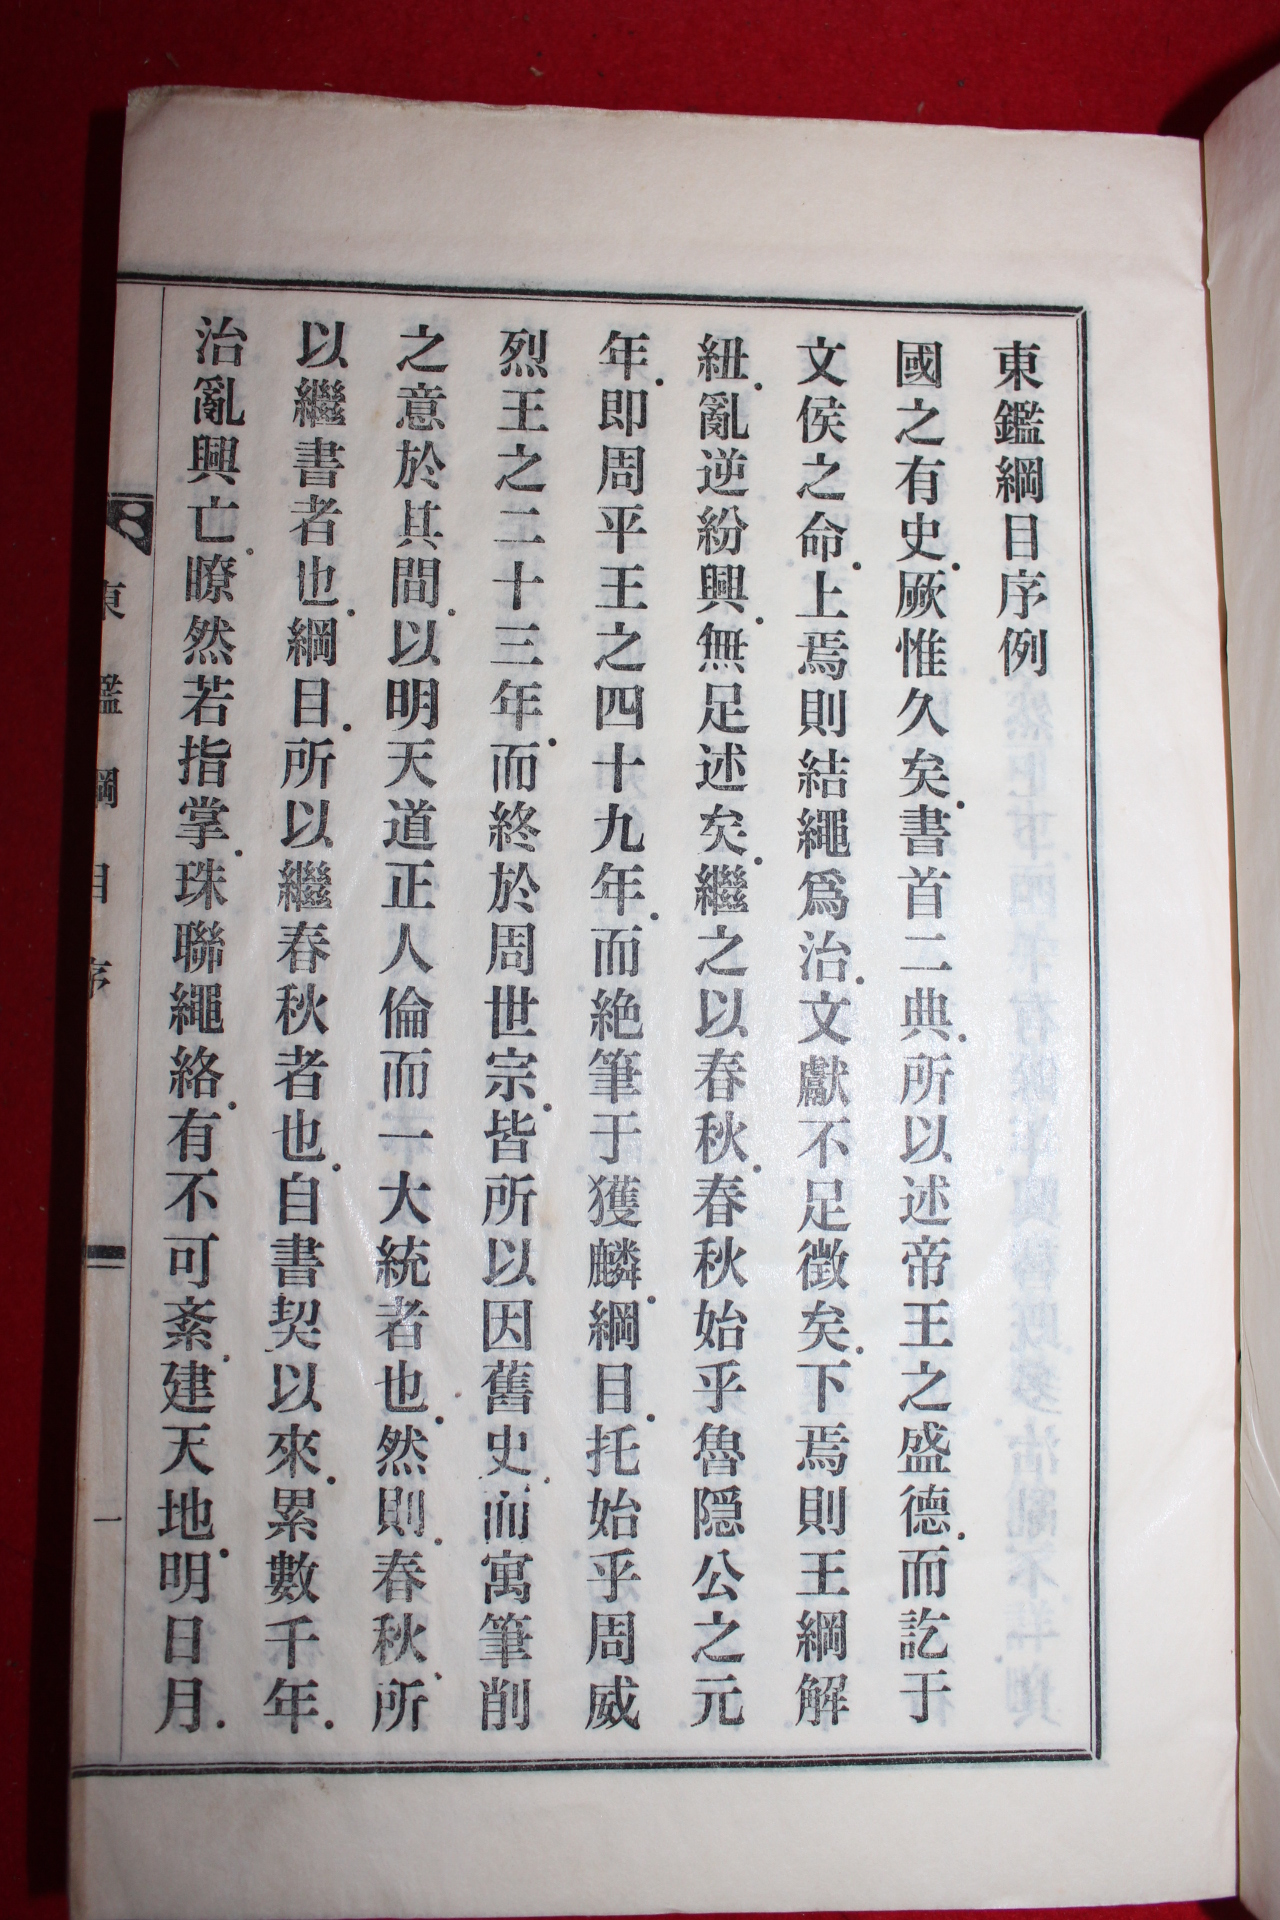 東鑑綱目序例
國之有史.厥惟久矣.書首二典.所以述帝王之盛德.而訖于
文侯之命.上焉則結繩爲治.文獻不足徵矣.下焉則王綱解
紐.亂逆紛興.無足述矣.繼之以春秋.春秋始乎魯隱公之元
年.即周平王之四十九年.而絶筆于獲麟.綱目.托始乎周威
烈王之二十三年.而終於周世宗.皆所以因舊史.而寓筆削
之意於其間.以明天道正人倫而一大統者也.然則.春秋.所
以繼書者也.綱目.所以繼春秋者也.自書契以來.累數千年.
治亂興亡.暸然若指掌.珠聯繩絡.有不可紊.建天地.明日月.
東鑑綱目序
一